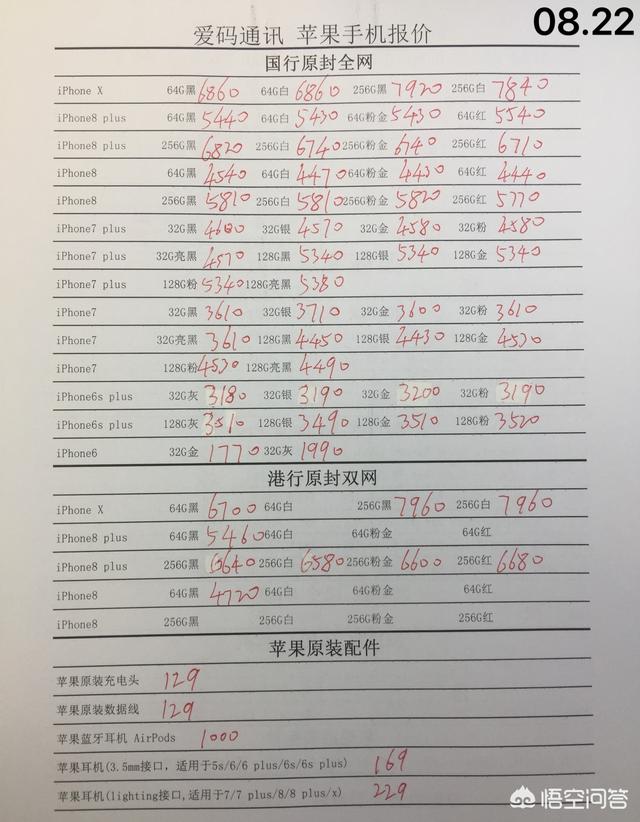 08.22
爱码通讯 苹果手机报价
国行原封全网
iPhone X 64G黑 6860 64G白 6860 256G黑 7920 256G白 7840
iPhone8 plus 64G黑 5440 64G白 5430 64G粉金 5430 64G红 5540
iPhone8 plus 256G黑 6820 256G白 6740 256G粉金 6740 256G红 6710
iPhone8 64G黑 4540 64G白 4470 64G粉金 4430 64G红 4440
iPhone8 256G黑 5810 256G白 5810 256G粉金 5820 256G红 5770
iPhone7 plus 32G黑 4600 32G银 4570 32G金 4580 32G粉 4580
iPhone7 plus 32G亮黑 4570 128G黑 5340 128G银 5340 128G金 5340
iPhone7 plus 128G粉 5340 128G亮黑 5380
iPhone7 32G黑 3610 32G银 3710 32G金 3600 32G粉 3610
iPhone7 32G亮黑 3610 128G黑 4450 128G银 4430 128G金 4530
iPhone7 128G粉 4530 128G亮黑 4490
iPhone6s plus 32G灰 3180 32G银 3190 32G金 3200 32G粉 3190
iPhone6s plus 128G灰 3510 128G银 3490 128G金 3510 128G粉 3520
iPhone6 32G金 1770 32G灰 1990
港行原封双网
iPhone X 64G黑 6700 64G白 256G黑 7960 256G白 7960
iPhone8 plus 64G黑 5460 64G白 64G粉金 64G红
iPhone8 plus 256G黑 6640 256G白 6580 256G粉金 6600 256G红 6680
iPhone8 64G黑 4720 64G白 64G粉金 64G红
iPhone8 256G黑 256G白 256G粉金 256G红
苹果原装配件
苹果原装充电头 129
苹果原装数据线 129
苹果蓝牙耳机 AirPods 1000
苹果耳机(3.5mm接口，适用于5s/6/6 plus/6s/6s plus) 169
苹果耳机(lighting接口,适用于7/7 plus/8/8 plus/x) 229
悟空问答